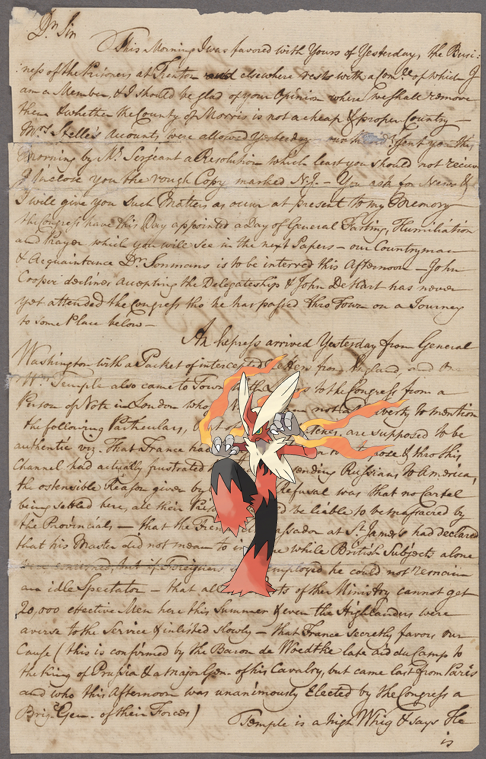 Dr. Sir
This Morning I was favored with Yours of Yesterday, the Busi-
:ness of the Prisoners at Trenton and elsewhere rests with a Com.ee of which I
am a Member, & I should be glad of your Opinion where we shall remove
them & whether the County of Morris is not a cheap & proper County —
Mr. Stelle's Account, were allowed Yesterday you this
Morning by Mr. Sergeant a Resolution which least you should not receive
I inclose you the rough Copy marked N.J. — You ask for News &
I will give you Such Matter as occur at present to my Memory
the Congress have this Day appointed a Day of General Fasting, Humiliation
and Prayer which you will see in the next Papers — our Countryman
& Acquaintance Dr. Sonmans is to be interred this Afternoon — John
Cooper declines accepting the Delegateship & John DeHart has never
yet attended the Congress tho he has passed thro Town on a Journey
to some Place below —
An Express arrived Yesterday from General
Washington with a Packet of intercepted Letters from England, and a
Mr. Temple also came to Town to the Congress from a
Person of Note in London who not at Liberty to mention
the following Particulars, are supposed to be
authentic viz. That France had & thro this
Channel had actually frustrated sending Russians to America,
the ostensible Reason given by Refusal was that no Cartel
being settled here, all their be liable to be massacred by
the Provincials — that the French at St. James's had declared
that his Master did not mean to while British Subjects alone
were employed he could not remain
an idle Spectator — that all of the Ministry cannot get
20,000 effective Men here this Summer & even the Highlanders were
averse to the Service & inlisted slowly — that France secretly favors our
Cause (this is confirmed by the Baron de Woedtke late Aid du Camp to
the King of Prussia & a major Gen. of his Cavalry, but came last from Paris
and who this Afternoon was unanimously Elected by the Congress a
Brig. Gen. of their Forces)
Temple is a high Whig & says He
is